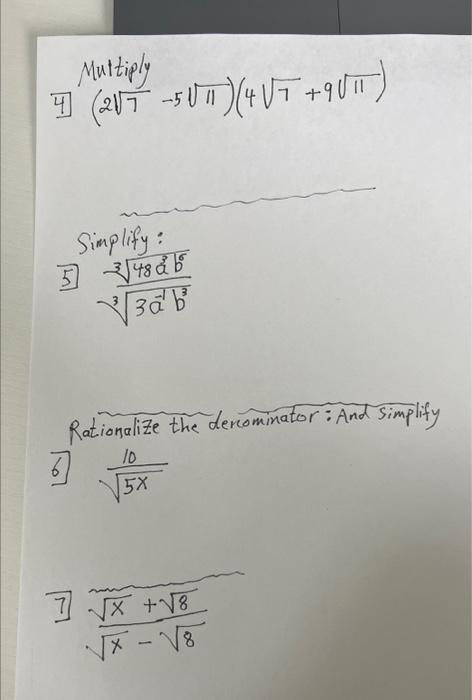 Multiply
4] (2√7 -5√11)(4√7 +9√11)
Simplify:
5] ∛(48a³b⁶)
∛(3a⁻¹b³)
Rationalize the denominator: And simplify
6] 10
√5x
7] √x + √8
√x - √8